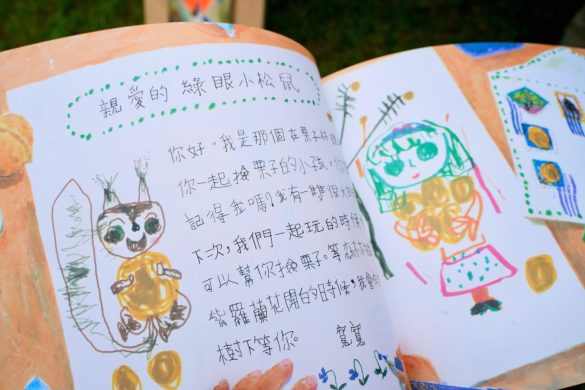 親愛的 綠眼小松鼠
你好。我是那個在栗子林
你一起撿栗子的小孩。
記得我嗎?我有一雙很大
下次,我們一起玩的時候
可以幫你撿栗子。等
紫羅蘭花開的時候,我會
樹下等你。 寬寬